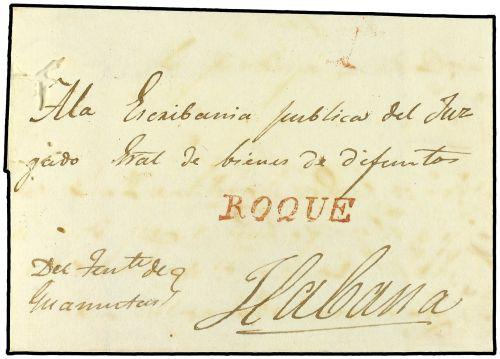 A la Escribania publica del Juz
gado Gral de bienes de difuntos
ROQUE
Del Tente de
Guamutas
Habana